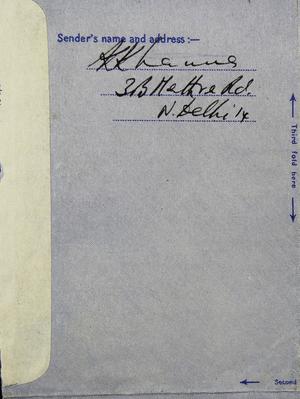 Sender's name and address :—
A K Khanna
3B Mathra Rd.
N. Delhi 14
Third fold here
Second